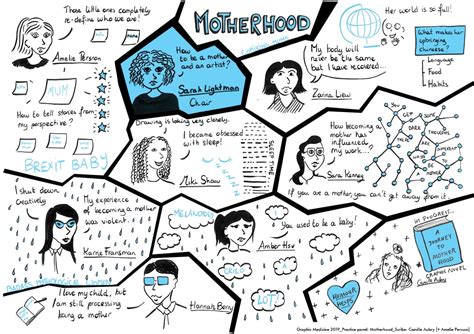 MOTHERHOOD
Those little ones completely
re-define who we are!
Amelie Persson
MUM
How to tell stories from
my perspective?
BREXIT BABY
How to
be a mother
and an artist?
Sarah Lightman
Chair
My body will
never be the same
but I have recovered...
Zarina Liew
Her world is so full!
What makes her
upbringing
chinese?
Language
Food
Habits
Drawing is taking very closely.
I became obsessed
with sleep!
Niki Shaw
How becoming a
mother has
influenced
my work...
Sara Kenney
YOU
GET
SUCH
DARK
THOUGHTS
If you are a mother, you can't get away from it.
I shut down
creatively
My experience
of becoming
a mother
was violent.
Karrie Fransman
I love my child, but
I am still processing
being a mother
Hannah Berry
MELANCHOLY
You used to be a baby!
Amber Hsu
I
CRIED
A
LOT!
HUMOUR
HELPS
IN PROGRESS...
A
JOURNEY
TO
MOTHER
HOOD
GRAPHIC NOVEL
Camille Aubry
Graphic Medicine 2019_Practice panel: Motherhood_Scriber: Camille Aubry (+ Amelie Persson)